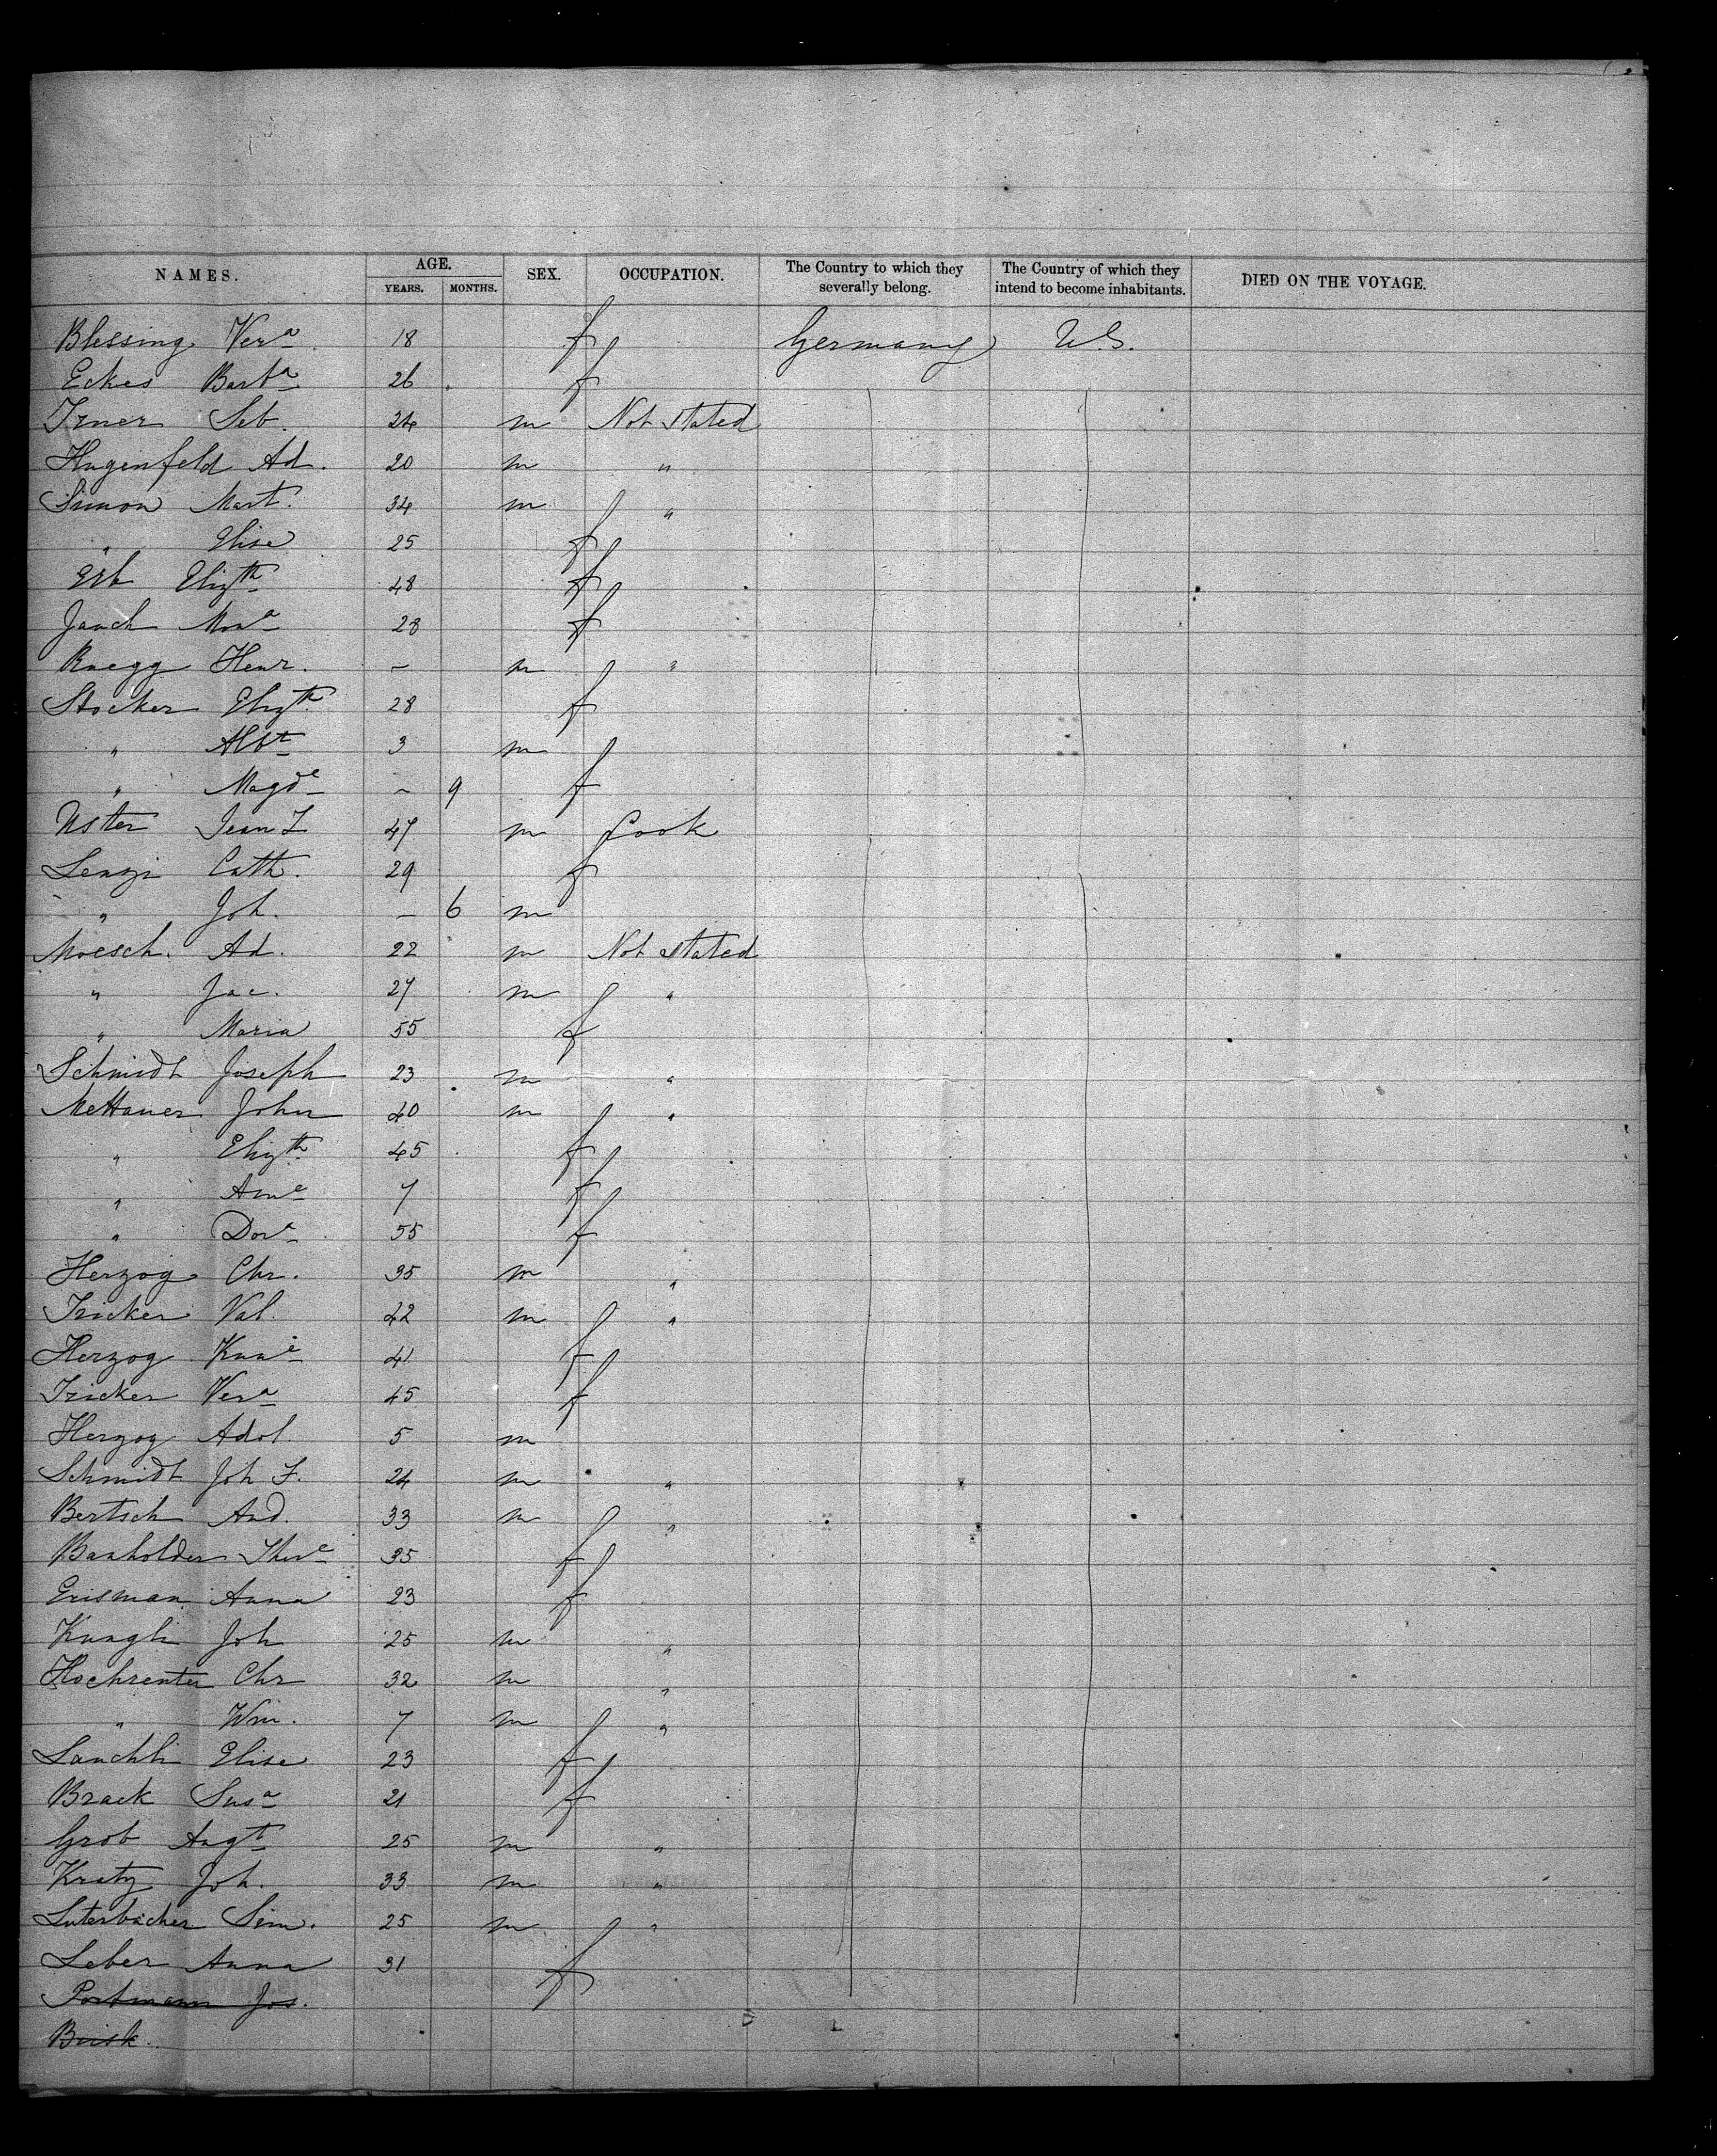 NAMES. AGE. SEX. OCCUPATION. The Country to which they severally belong. The Country of which they intend to become inhabitants. DIED ON THE VOYAGE.
YEARS. MONTHS.
Blessing Verª 18 f Germany U.S.
Eckes Barbª 26 f
Irner Seb. 24 m Not stated
Hugenfeld Ad. 20 m "
Simon Mart. 34 m "
" Elise 25 f
Erb Elizth 48 f
Jauch Monª 28 f
Ruegg Henr. - m "
Stocker Elizth 28 f
" Albt 3 m
" Magde - 9 f
Uster Jean L 47 m Cook
Lenzi Cath. 29 f
" Joh. - 6 m
Moesch. Ad. 22 m Not stated
" Jac. 27 m "
" Maria 55 f
Schmidt Joseph 23 m "
Mettauer John 40 m "
" Elizth 45 f
" 7 f
" Dorª 55 f
Herzog Chr. 35 m "
Fricker Val. 42 m "
Herzog 41 f
Fricker Verª 45 f
Herzog Adol. 5 m
Schmidt Joh F. 24 m "
Bertsch And. 33 m "
Banholder There 35 f
Erisman Anna 23 f
Kungli Joh 25 m "
Hochreuter Chr 32 m "
" Wm. 7 m "
Lauchli Elise 23 f
Brack Susª 21 f
Grob Augt 25 m "
Kratz Joh. 33 m "
Luterbacher Sim. 25 m "
Leber Anna 31 f
Portmann Jos.
Brisk.